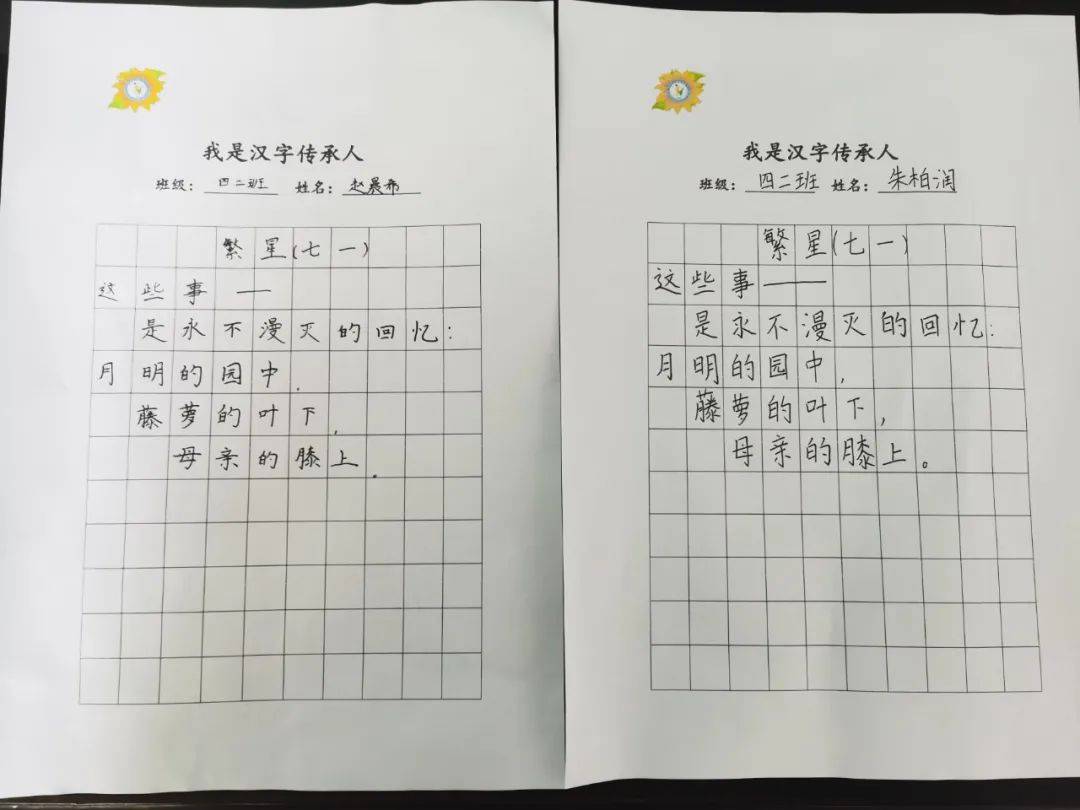 我是汉字传承人
班级：四二班 姓名：赵晨希
繁星(七一)
这些事——
是永不漫灭的回忆：
月明的园中，
藤萝的叶下，
母亲的膝上。
我是汉字传承人
班级：四二班 姓名：朱柏润
繁星(七一)
这些事——
是永不漫灭的回忆：
月明的园中，
藤萝的叶下，
母亲的膝上。